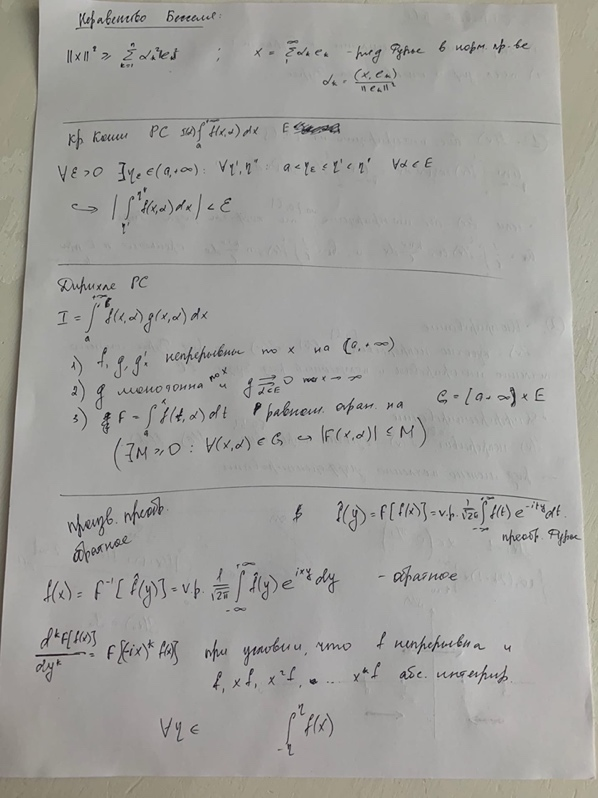 Неравенство Бесселя:
||x||² ≥ Σ_{k=1}^{n} α_k² ||e_k||² ; x = Σ_{1}^{∞} α_k e_k - ряд Фурье в норм. пр-ве
α_k = (x, e_k) / ||e_k||²
кр. Коши РС ∫_a^{+∞} f(x,α) dx E
∀ε > 0 ∃η_ε ∈ (a, +∞): ∀η', η'' : a < η_ε ≤ η' < η'' ∀α ∈ E
↪ |∫_{η'}^{η''} f(x,α) dx| < ε
Дирихле РС
I = ∫_a^{+∞} f(x,α) g(x,α) dx
1) f, g, g'ₓ непрерывны по x на [a, +∞)
2) g монотонна по x и g ⇉_{α∈E} 0 x → ∞
3) F = ∫_a^x f(t,α) dt равном. огран. на G = [a, +∞) × E
(∃M ≥ 0 : ∀(x,α) ∈ G ↪ |F(x,α)| ≤ M)
произв. преобр.
обратное
f̂(y) = F[f(x)] = v.p. 1/√2π ∫_{-∞}^{+∞} f(t) e^{-ity} dt.
преобр. Фурье
f(x) = F⁻¹[f̂(y)] = v.p. 1/√2π ∫_{-∞}^{+∞} f̂(y) e^{ixy} dy - обратное
d^k F[f(x)] / dy^k = F[(-ix)^k f(x)] при условии, что f непрерывна и
f, xf, x²f, ... x^k f абс. интегрир.
∀η ∈ ∫_{-η}^{η} f(x)